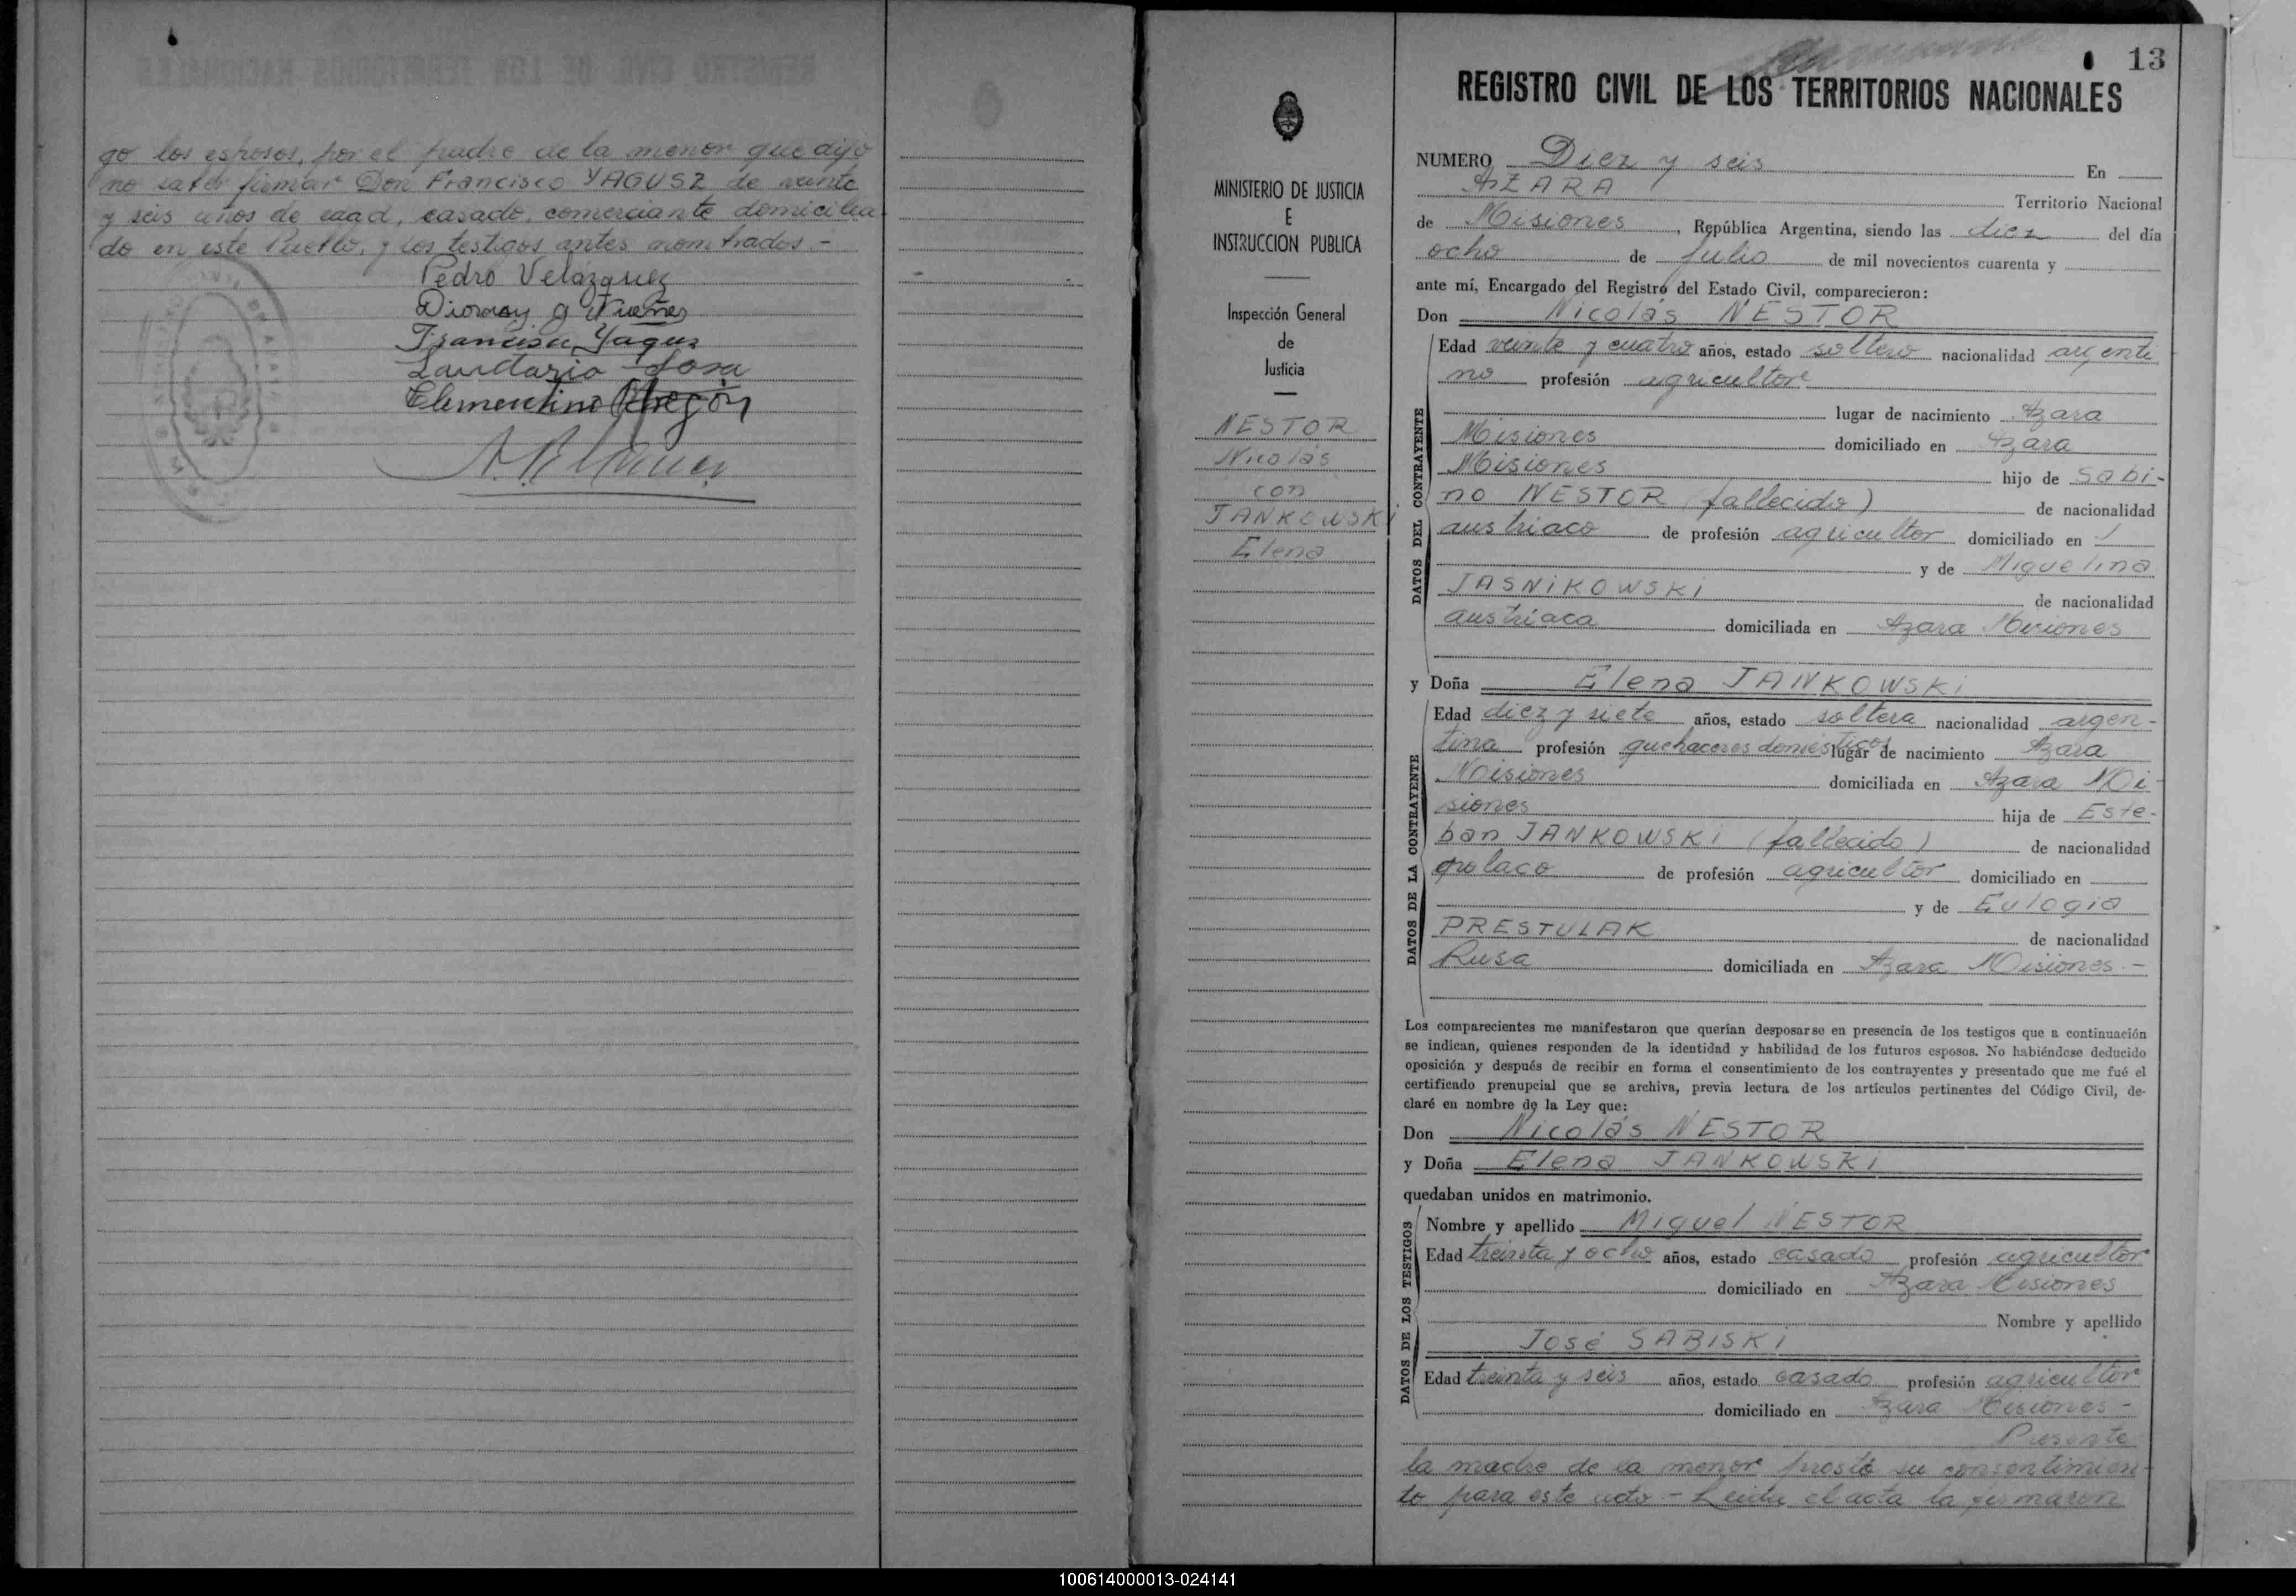 go los esposos, por el padre de la menor que dijo
no saber firmar Don Francisco YAGUSZ de veinte
y seis años de edad, casado, comerciante domicilia
do en este Pueblo, y los testigos antes nombrados.-
Pedro Velázquez
Francisco Yagus
Lauttario Sosa
Clementino Obregón
13
REGISTRO CIVIL DE LOS TERRITORIOS NACIONALES
MINISTERIO DE JUSTICIA
E
INSTRUCCION PUBLICA
Inspección General
de
Justicia
NESTOR
Nicolás
con
JANKOWSKI
Elena
NUMERO Diez y seis En
AZARA Territorio Nacional
de Misiones, República Argentina, siendo las diez del día
ocho de Julio de mil novecientos cuarenta y
ante mí, Encargado del Registro del Estado Civil, comparecieron:
Don Nicolás NESTOR
DATOS DEL CONTRAYENTE
Edad veinte y cuatro años, estado soltero nacionalidad argenti
no profesión agricultor
lugar de nacimiento Azara
Misiones domiciliado en Azara
Misiones hijo de Sabi-
no NESTOR (fallecido) de nacionalidad
austriaco de profesión agricultor domiciliado en
y de Miguelina
JASNIKOWSKI de nacionalidad
austriaca domiciliada en Azara Misiones
y Doña Elena JANKOWSKI
DATOS DE LA CONTRAYENTE
Edad diez y siete años, estado soltera nacionalidad argen-
tina profesión quehaceres domésticos lugar de nacimiento Azara
Misiones domiciliada en Azara Mi-
siones hija de Este-
ban JANKOWSKI (fallecido) de nacionalidad
polaco de profesión agricultor domiciliado en
y de Eulogia
PRESTULAK de nacionalidad
Rusa domiciliada en Azara Misiones.-
Los comparecientes me manifestaron que querían desposarse en presencia de los testigos que a continuación
se indican, quienes responden de la identidad y habilidad de los futuros esposos. No habiéndose deducido
oposición y después de recibir en forma el consentimiento de los contrayentes y presentado que me fué el
certificado prenupcial que se archiva, previa lectura de los artículos pertinentes del Código Civil, de-
claré en nombre de la Ley que:
Don Nicolás NESTOR
y Doña Elena JANKOWSKI
quedaban unidos en matrimonio.
DATOS DE LOS TESTIGOS
Nombre y apellido Miguel NESTOR
Edad treinta y ocho años, estado casado profesión agricultor
domiciliado en Azara Misiones
Nombre y apellido
José SABISKI
Edad treinta y seis años, estado casado profesión agricultor
domiciliado en Azara Misiones-
Presente
la madre de la menor prestó su consentimien-
to para este acto - Leída el acta la firmaron
100614000013-024141